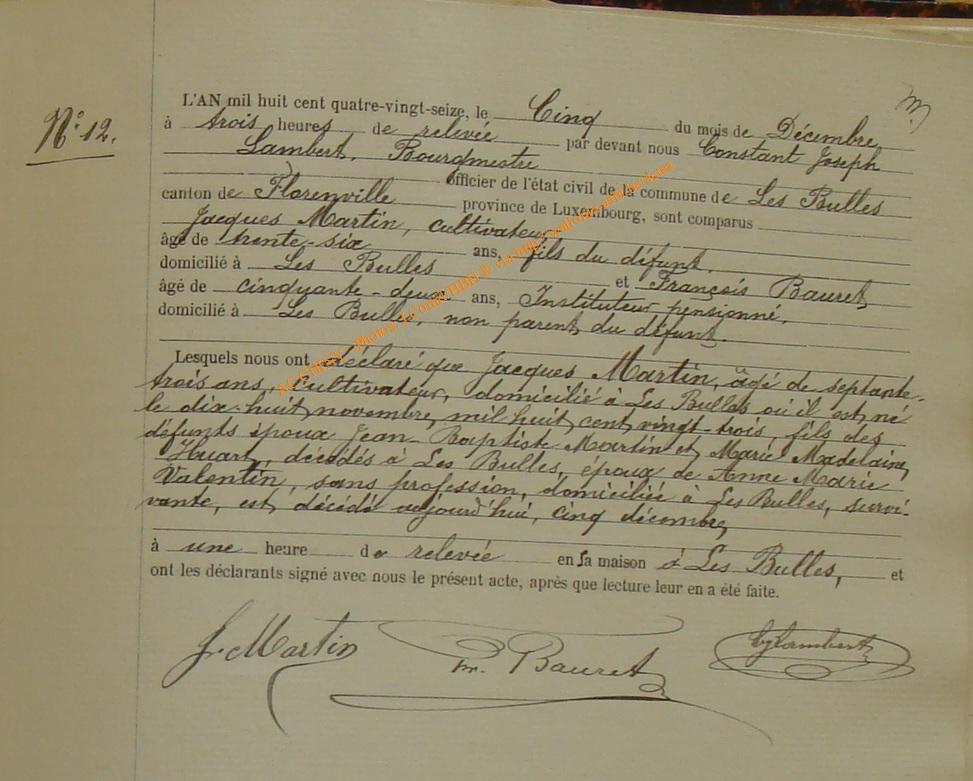 N° 12.
L'AN mil huit cent quatre-vingt-seize, le Cinq du mois de Décembre
à trois heures, de relevée par devant nous Constant Joseph
Lambert, Bourgmestre officier de l'état civil de la commune de Les Bulles
canton de Florenville province de Luxembourg, sont comparus
Jacques Martin, cultivateur
âgé de trente-six ans, fils du défunt.
domicilié à Les Bulles et François Bauret
âgé de cinquante-deux ans, Instituteur pensionné,
domicilié à Les Bulles, non parent du défunt.
Lesquels nous ont déclaré que Jacques Martin, âgé de septante-
trois ans, cultivateur, domicilié à Les Bulles où il est né
le dix-huit novembre mil huit cent vingt-trois, fils des
défunts époux Jean-Baptiste Martin et Marie Madelaine
Huart, décédés à Les Bulles, époux de Anne Marie
Valentin, sans profession, domiciliée à Les Bulles, survi-
vante, est décédé aujourd'hui, cinq décembre,
à une heure de relevée en sa maison à Les Bulles, et
ont les déclarants signé avec nous le présent acte, après que lecture leur en a été faite.
J. Martin Bauret CJLambert